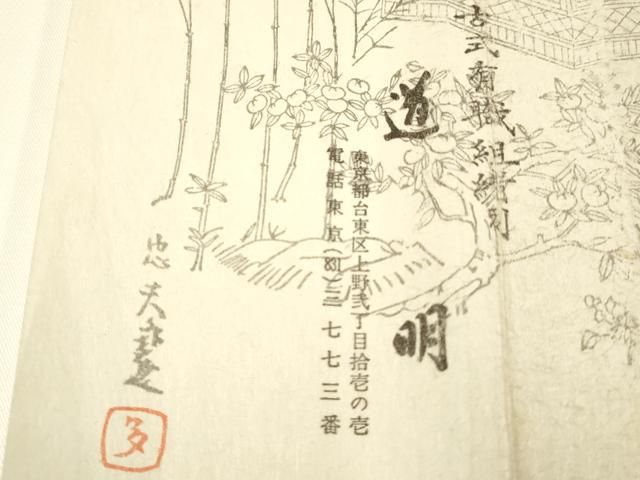 古式有職組紐司
道明
東京都台東区上野弐丁目拾壱の壱
電話東京(831)三七七三番